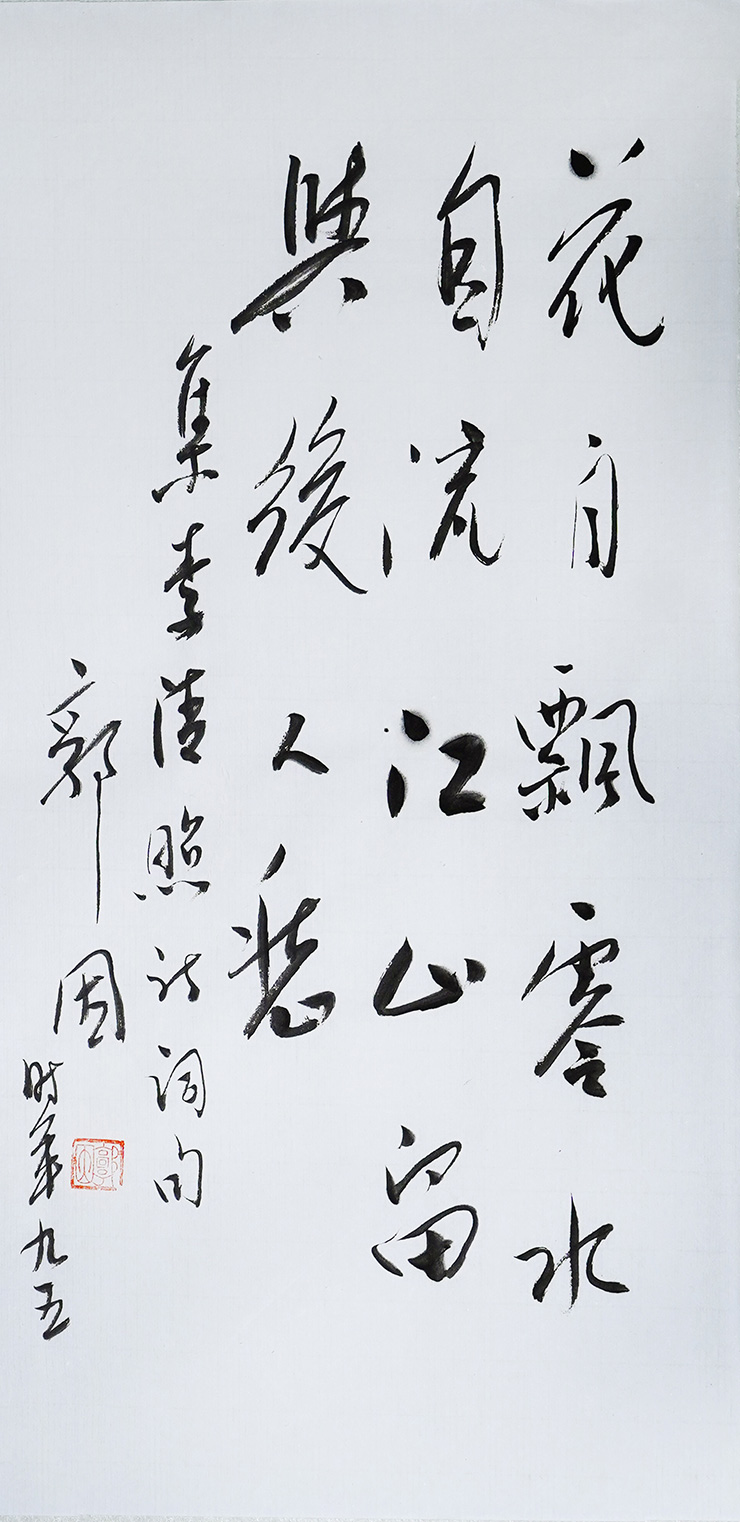 花自飄零水
自流江山留
與後人愁
集李清照诗词句
郭因
时年九五
郭因